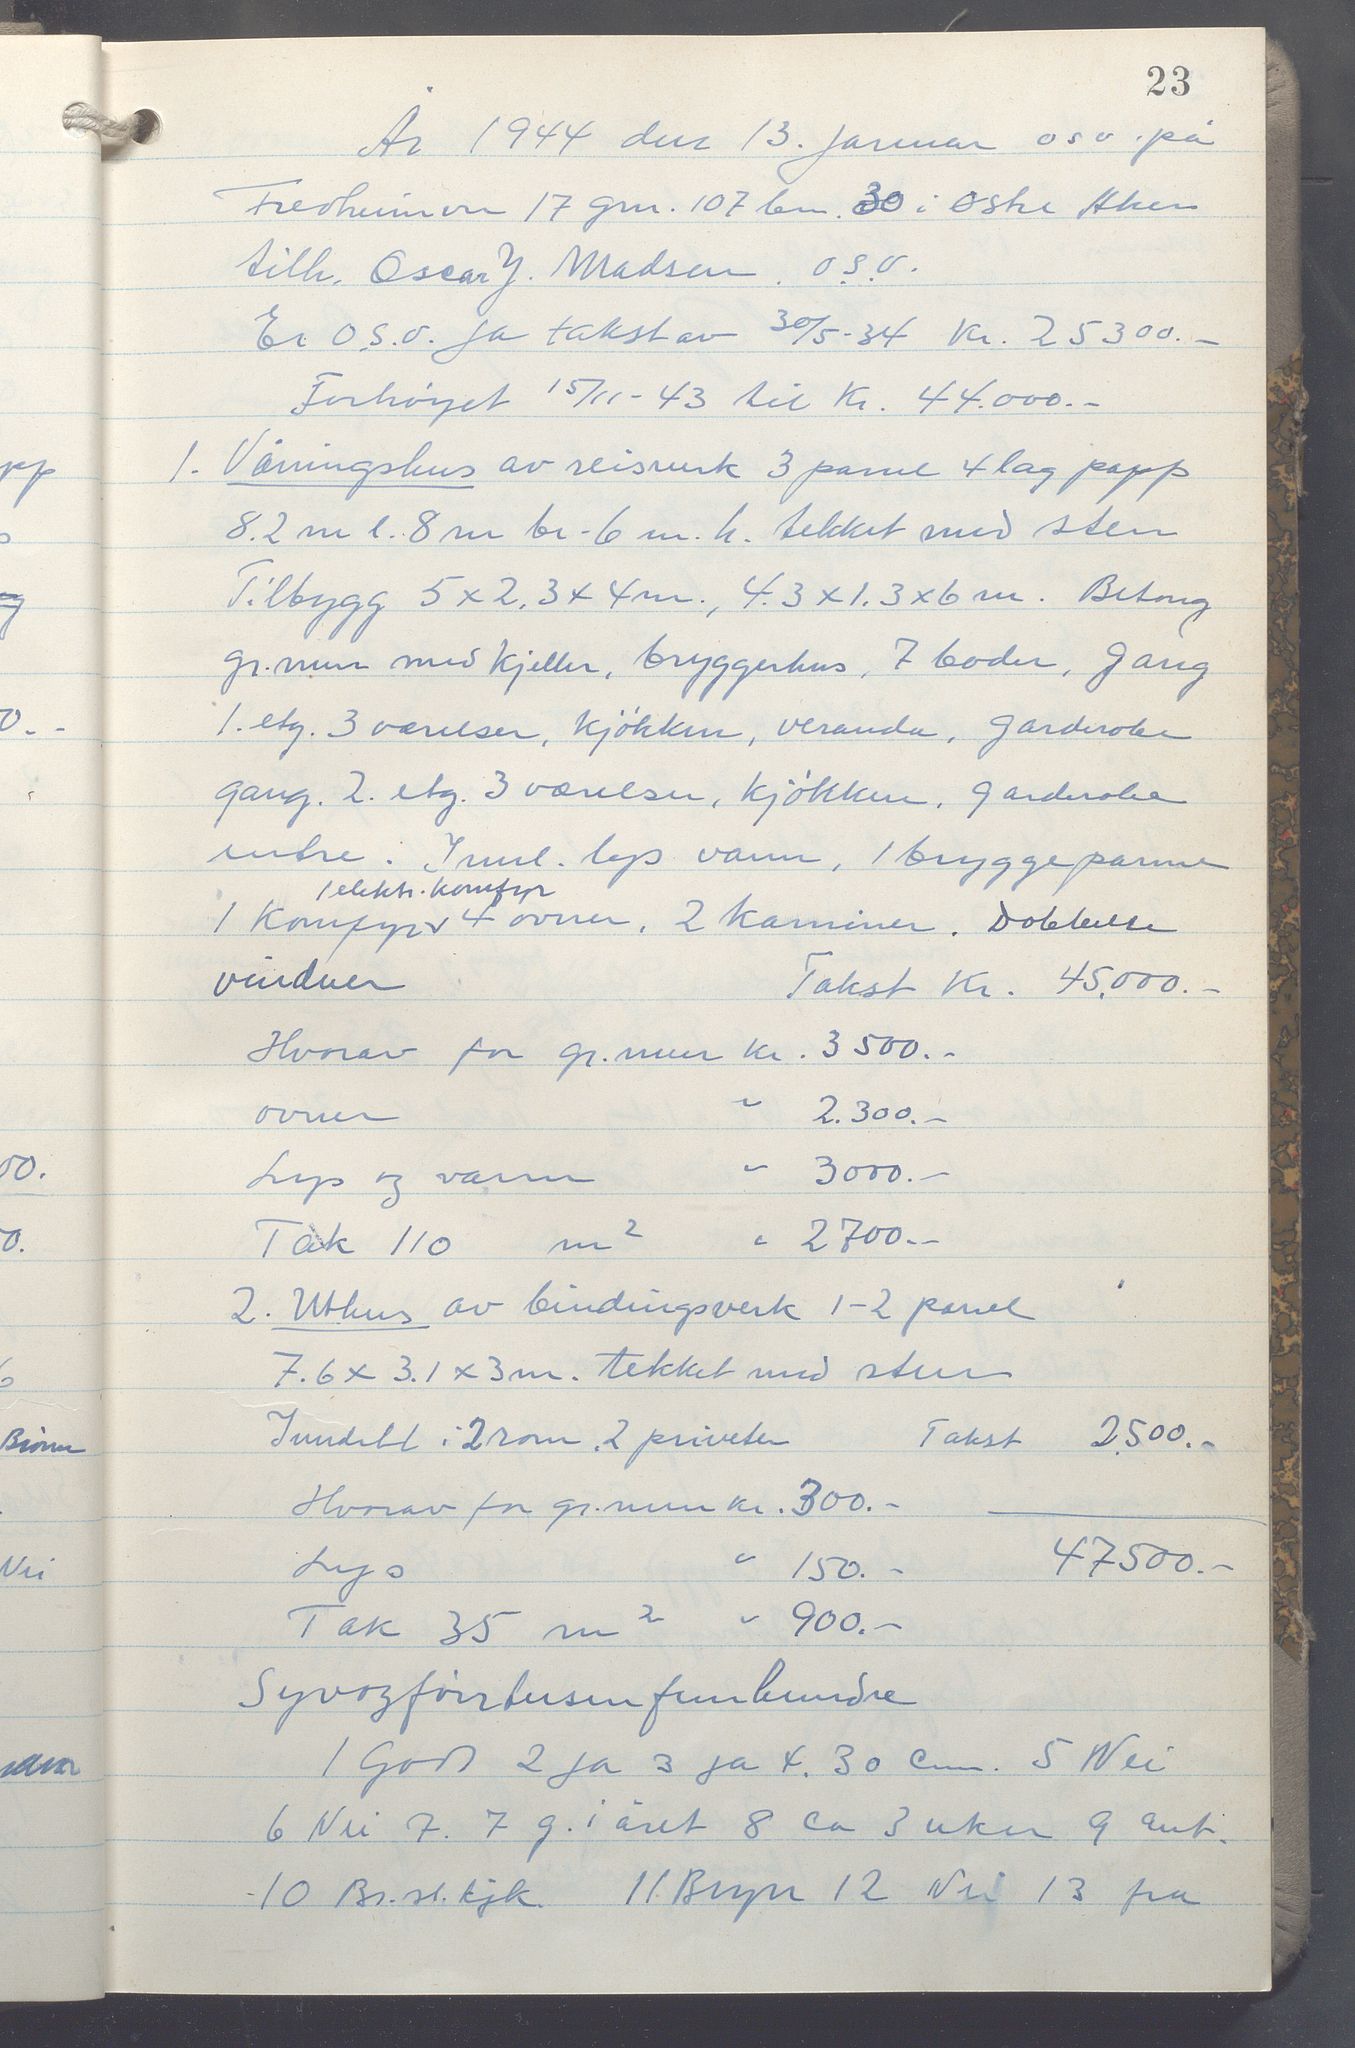 23
År 1944 den 13. januar o s v. på
Fredheimvn 17 grn. 107 bn. 30 i Østre Aker
tilh. Oscar J. Madsen. o.s.v.
Er o.s.v. Ja takst av 30/5-34 kr. 25300.-
Forhøyet 15/11-43 til kr. 44.000.-
1. Våningshus av reisverk 3 panel 4 lag papp
8.2 m l. 8 m br - 6 m. h. tekket med sten
Tilbygg 5 x 2.3 x 4 m., 4.3 x 1.3 x 6 m. Betong
gr.mur med kjeller, bryggerhus, 7 boder, gang
1. etg. 3 værelser, kjøkken, veranda, garderobe
gang. 2. etg. 3 værelser, kjøkken, garderobe
entre. Innl. lys vann, 1 bryggepanne
1 elektr. komfyr
1 Komfyr 4 ovner, 2 kaminer. Dobbelte
vinduer Takst Kr. 45.000.-
Hvorav for gr.mur kr. 3500.-
ovner " 2.300.-
Lys og vann " 3000.-
Tak 110 m2 " 2700.-
2. Uthus av bindingsverk 1-2 panel
7.6 x 3.1 x 3 m. tekket med sten
Inndelt i 2 rom, 2 priveter Takst 2500.-
Hvorav for gr.mur kr. 300.-
Lys " 150.- 47500.-
Tak 35 m2 " 900.-
Syvogførrtusenfemhundre
1 Godt 2 ja 3 ja 4. 30 cm. 5 Nei
6 Nei 7. 7 g. i året 8 ca 3 uker 9 ant.
10 Br.st.kjk. 11 Bryn 12 Nei 13 fra
pp
0.-
00.
0.
6
Nei